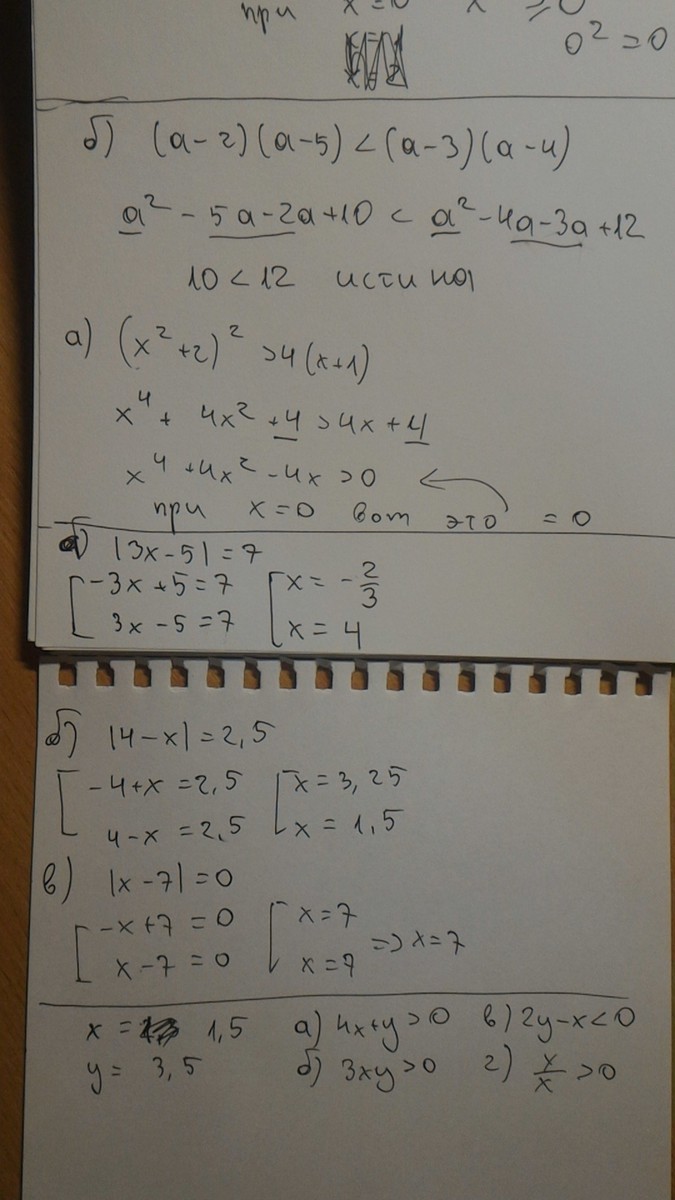 при x=0 x ≥0
0² = 0
б) (a-2)(a-5) < (a-3)(a-4)
a² - 5a-2a+10 < a²-4a-3a+12
10 < 12 истина
а) (x²+2)² >4(x+1)
x⁴ + 4x² +4 >4x+4
x⁴ +4x² -4x >0
при x=0 вот это =0
|3x-5|=7
[-3x+5=7 [x= -2/3
3x-5=7 x=4
б) |4-x|=2,5
[-4+x=2,5 [x=3,25
4-x=2,5 x=1,5
в) |x-7|=0
[-x+7=0 [x=7
x-7=0 x=7 => x=7
x= 1,5 а) 4x+y>0 в) 2y-x<0
y= 3,5 б) 3xy>0 г) x/x >0